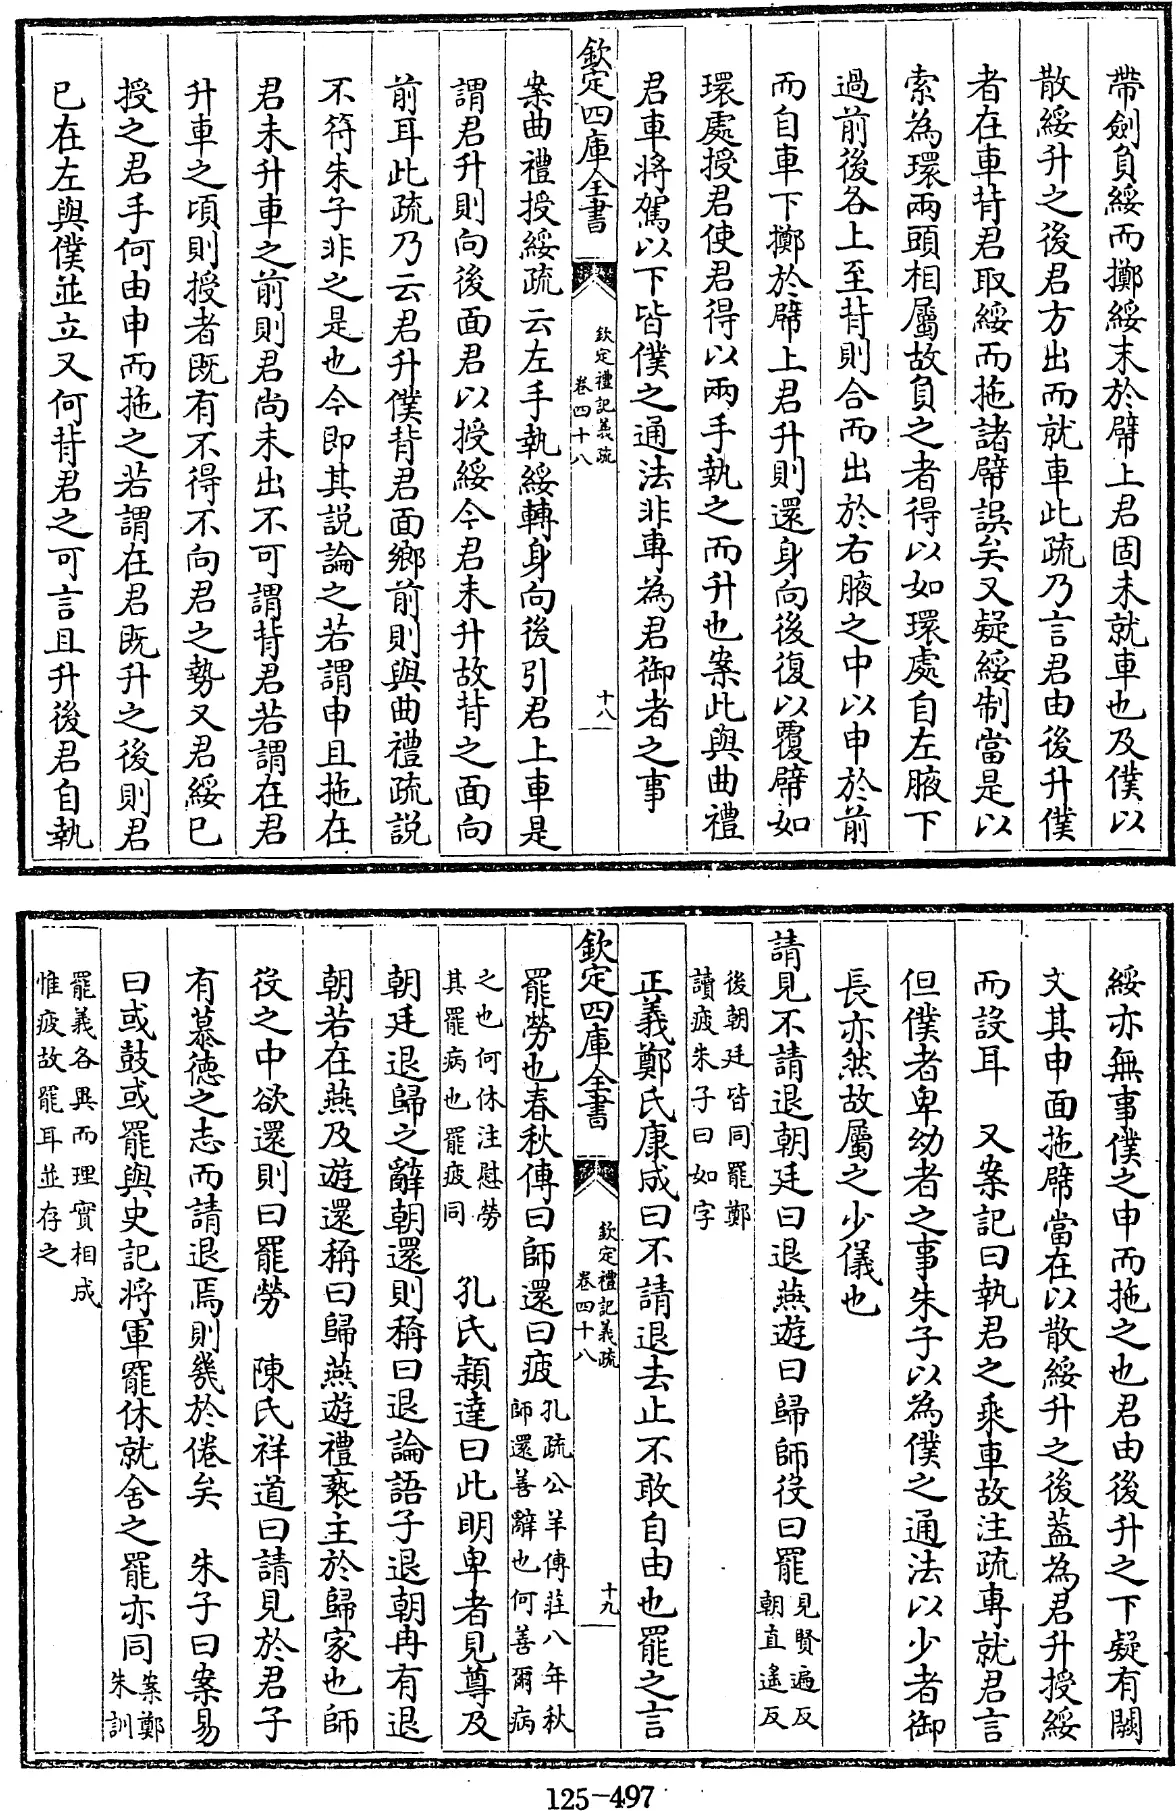 帶劍負綏而擲綏末於幦上君固未就車也及僕以
散綏升之後君方出而就車此疏乃言君由後升僕
者在車背君取綏而拖諸幦誤矣又疑綏制當是以
索為環兩頭相屬故負之者得以如環處自左腋下
過前後各上至背則合而出於右腋之中以申於前
而自車下擲於幦上君升則還身向後復以覆幦如
環處授君使君得以兩手執之而升也案此與曲禮
君車將駕以下皆僕之通法非專為君御者之事
欽定四庫全書
欽定禮記義疏
卷四十八
十八
案曲禮授綏疏云左手執綏轉身向後引君上車是
謂君升則向後面君以授綏今君未升故背之面向
前耳此疏乃云君升僕背君面鄉前則與曲禮疏說
不符朱子非之是也今即其説論之若謂申且拖在
君未升車之前則君尚未出不可謂背君若謂在君
升車之頃則授者既有不得不向君之勢又君綏已
授之君手何由申而拖之若謂在君既升之後則君
已在左與僕並立又何背君之可言且升後君自執
綏亦無事僕之申而拖之也君由後升之下疑有闕
文其申面拖幦當在以散綏升之後蓋為君升授綏
而設耳　又案記曰執君之乘車故注疏專就君言
但僕者卑幼者之事朱子以為僕之通法以少者御
長亦然故屬之少儀也
請見不請退朝廷曰退燕遊曰歸師役曰罷見賢遍反
朝直遙反
後朝廷皆同罷鄭
讀疲朱子曰如字
正義鄭氏康成曰不請退去止不敢自由也罷之言
欽定四庫全書
欽定禮記義疏
卷四十八
十九
罷勞也春秋傳曰師還曰疲孔疏公羊傳莊八年秋
師還善辭也何善爾病
之也何休注慰勞
其罷病也罷疲同　孔氏穎達曰此明卑者見尊及
朝廷退歸之辭朝還則稱曰退論語子退朝冉有退
朝若在燕及遊還稱曰歸燕遊禮褻主於歸家也師
役之中欲還則曰罷勞　陳氏祥道曰請見於君子
有慕德之志而請退焉則幾於倦矣　朱子曰案易
曰或鼓或罷與史記將軍罷休就舍之罷亦同案鄭
朱訓
罷義各異而理實相成
惟疲故罷耳並存之
125-497